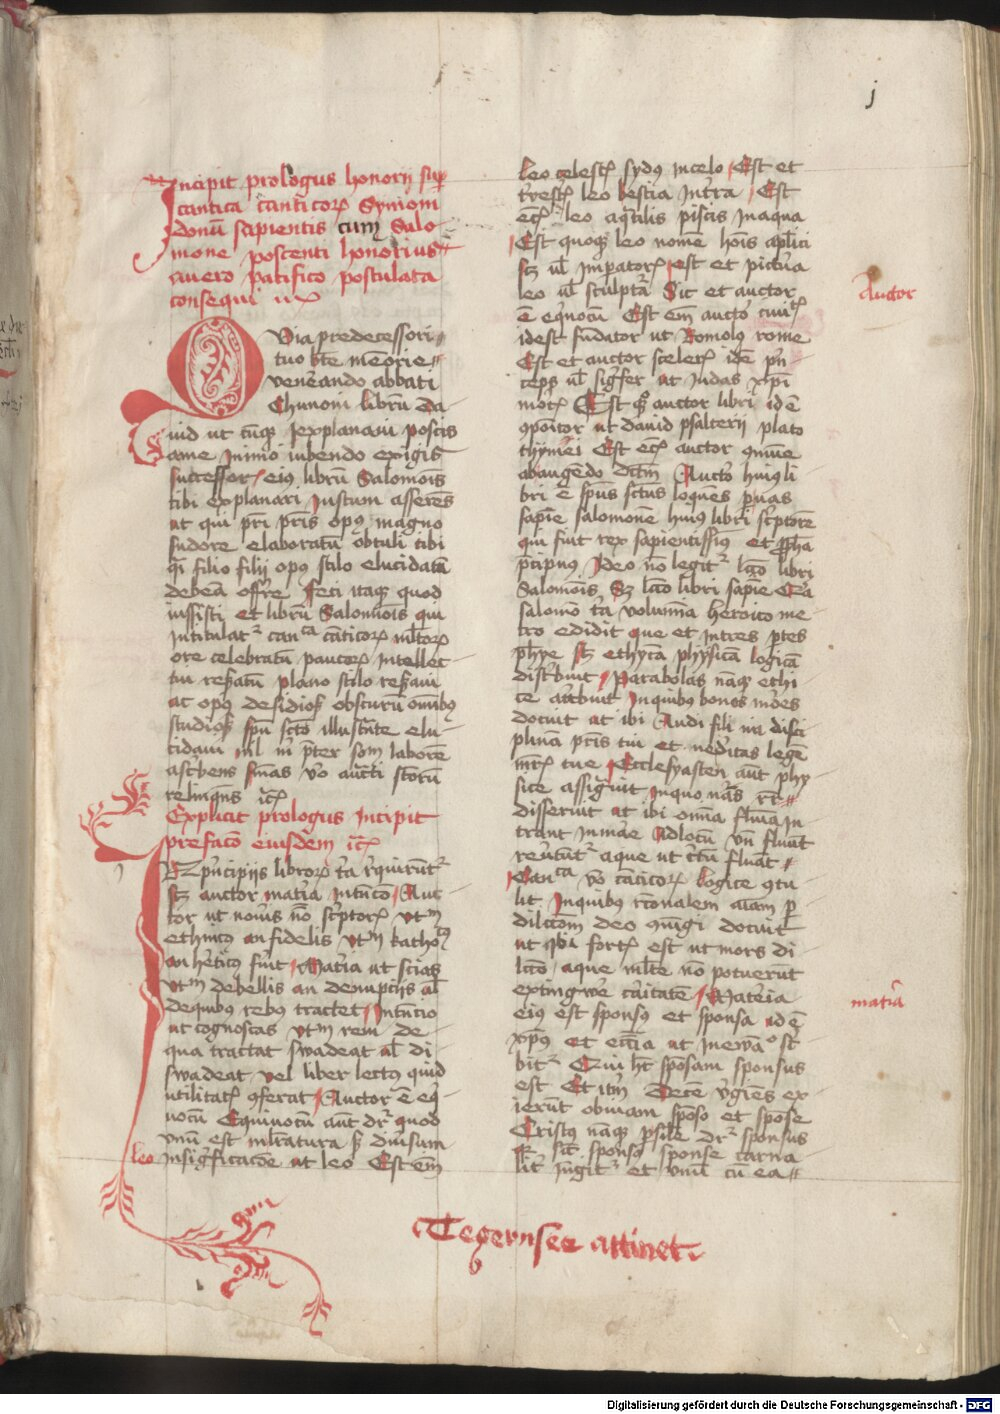 j
Incipit prologus honorij sup
cantica canticorz Symoni
donum sapientis cum Salo-
mone poscenti honorius
vero pacifico postulata
consequi
Quia predecessori
tuo bte memorie
venerando abbati
Chunoni librum da-
uid ut cumque explanaui poscis
ame nimio iubendo exigis
successor eius librum Salomonis
tibi explanari Justum asserens
ut qui pri pris opus magno
sudore elaboratum obtuli tibi
qi filio filij opus stilo elucidatum
debeam offre feci itaque quod
iussisti et librum Salomonis qui
Intitulatr canca canticorz mltorz
ore celebratum paucorz Intellec-
tui resatum plano stilo reseraui
at opus desidiosis obscurum omnibus
studiosis spu scto illustrante elu-
cidaui
ascribens
relinquens
Explicit prologus Incipit
prefaco eiusdem
In principijs librorz tria requiruntr
scz auctor materia Intencio Auc-
tor ut noueris
ethnicus an fidelis utrum katholicus
an hereticus fuerit Materia ut scias
utrum debellis an denupcijs al
dequibus rebus tractet Intencio
ut cognoscas utrum rem de
qua tractat swadeat al di-
swadeat vel liber lectus quid
utilitatis conferat Auctor e equi-
uocum Equiuocum aut dr quod
vnum est in litteratura sz diuersum
leo Insignificacione ut leo Est em
leo celestis sydus Incelo Est et
terrestris leo bestia Interra Est
ecia leo aquatilis piscis Inaqua
Est quoque leo nomen hois aplici
scz ul Imperatorz est et pictura
leo ul sculptura Sic et auctor
e equocum Est em auctor ciuitatis
idest fundator ut Romolus rome
Est et auctor sceleris idem prin-
ceps ul signifer ut Judas xpi
mortis Est quoque auctor libri idem
compositor ut dauid psalterij plato
thymei Est ecia auctor commune
abaugendo dictum Auctor huius li-
bri e spus sctus loquens per uas
sapie salomonem huius libri scriptorem
qui fuit rex sapientissimus et propheta
precipuus Ideo non legitr lco libri
Salomonis Sz lco libri sapie
salomon tria volumina heroico me-
tro edidit que et Intres partes
phye scz ethycam physicam logicam
distribuit Parabolas namque ethi-
ce attribuit Inquibus bonos mores
docuit ut ibi Audi fili mi disci-
plinam pris tui et ne dimittas legem
mris tue Ecclesyasten aut phy-
sice assignauit Inquo naturas rerum
disseruit ut ibi omnia flumina In-
trant Inmare Adlocum unde fluunt
reuertuntr aque ut iterum fluant
Canca vero canticorz logice contu-
lit Inquibus racionalem animam per
dilectionem deo coniungi docuit
ut ibi fortis est ut mors di-
lectio aque multe non potuerunt
extingwere caritatem Materia
eius est sponsus et sponsa id e
xpus et ecclia ut Inewangelio scri-
bitr Qui ht sponsam sponsus
est Et item Decem virgines ex-
ierunt obuiam sponso et sponse
Cristus namque per simile dr sponsus
Sicut sponsus sponse carna-
liter iungitr et vnum cum ea
Auctor
materia
Tegernsee attinet
Digitalisierung gefördert durch die Deutsche Forschungsgemeinschaft - DFG